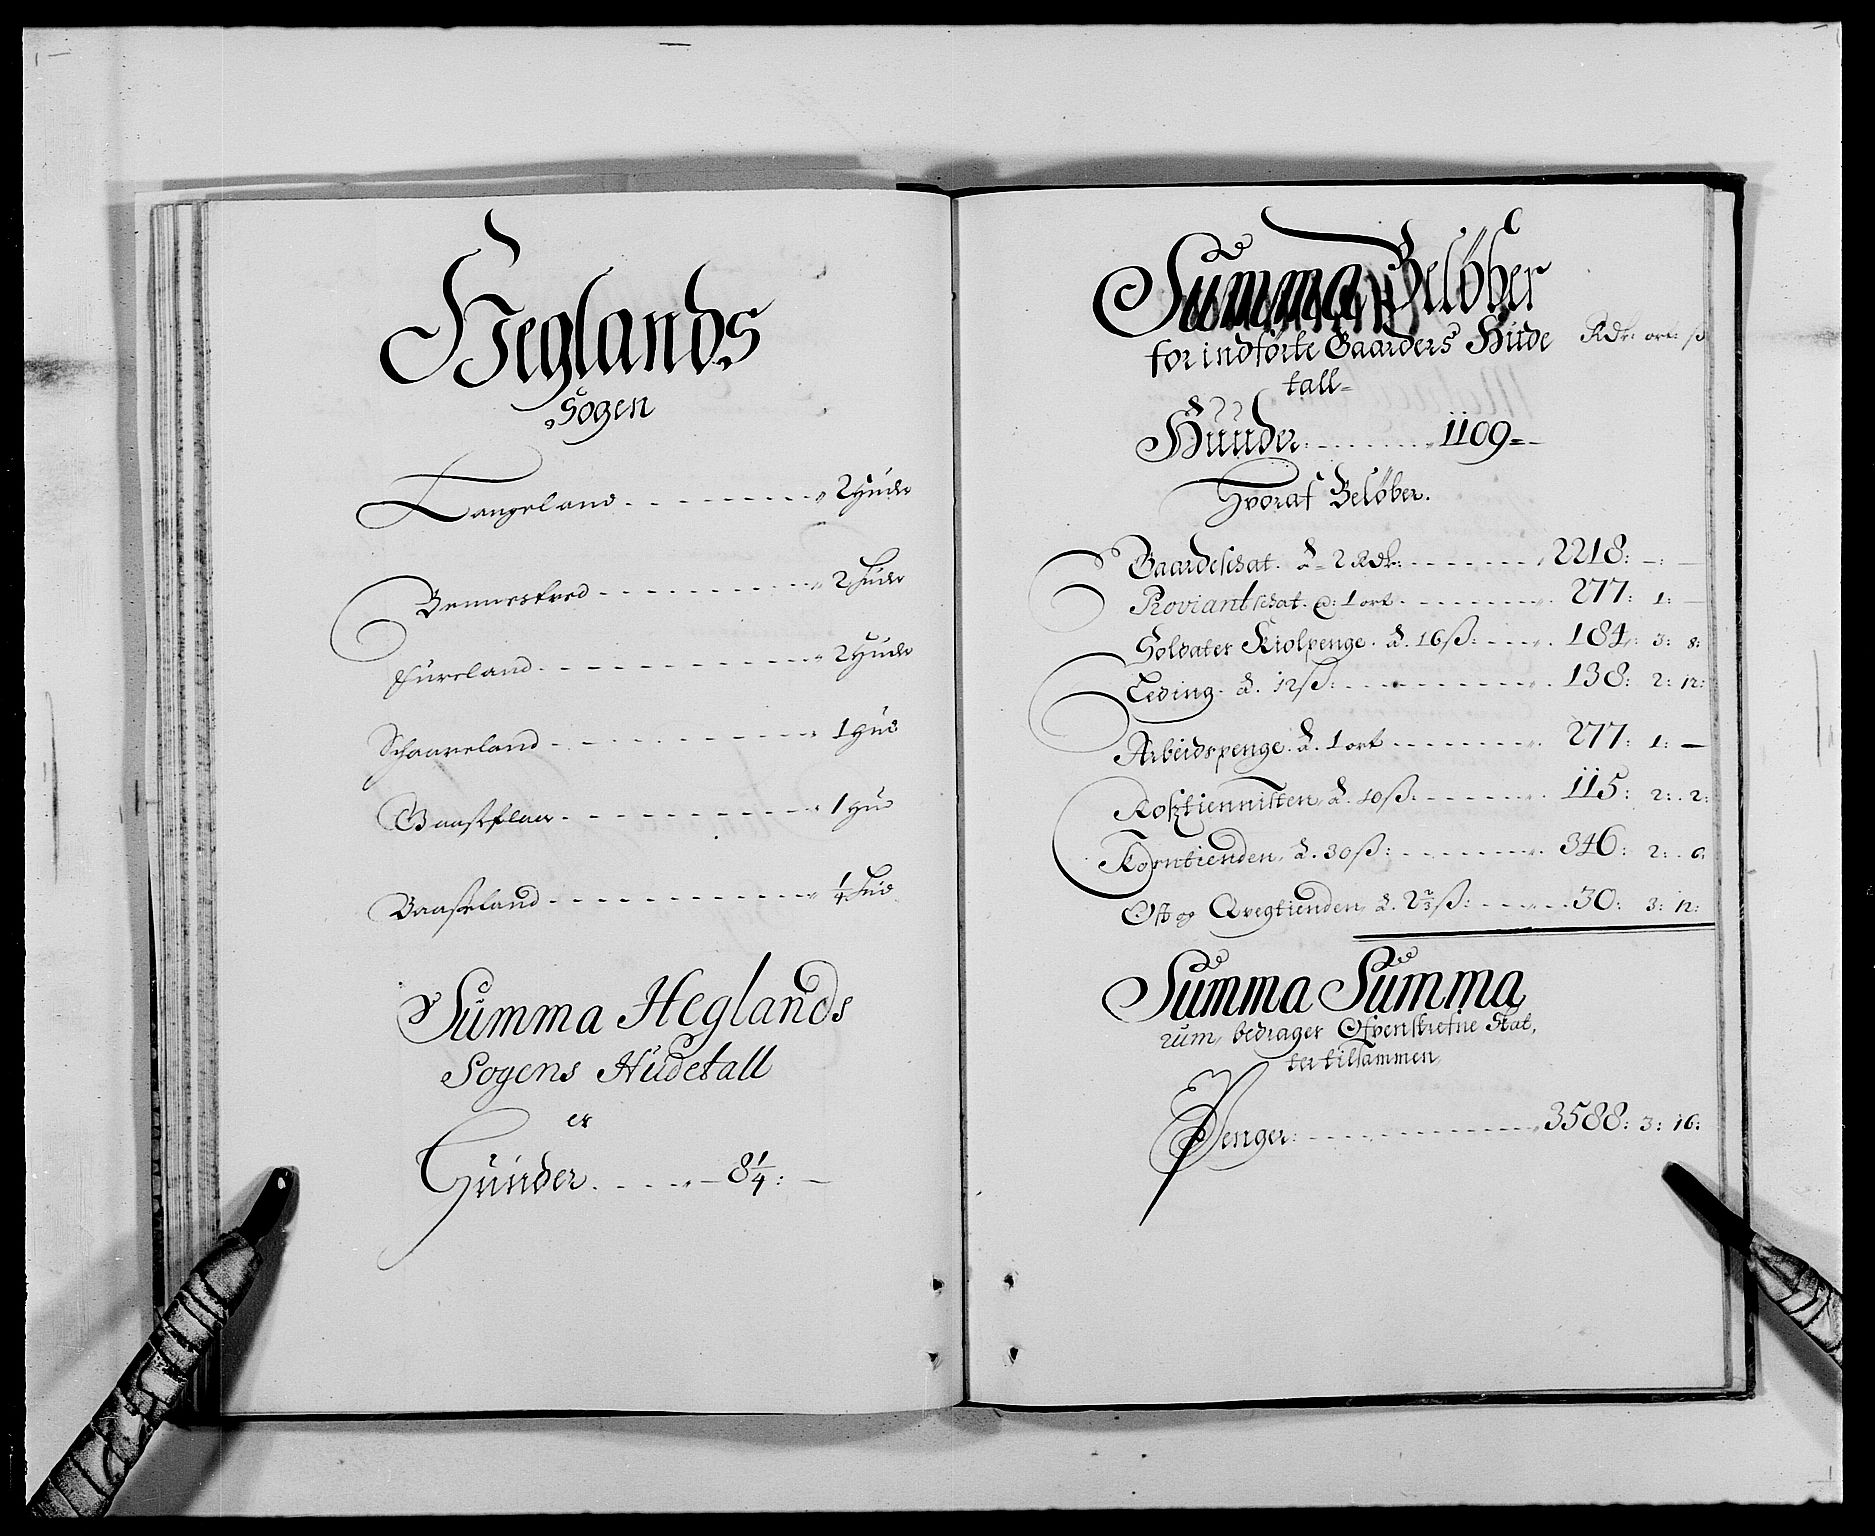 Heglands
Sogen
Tangeland - - - - 2 Huder
Bennestvod - - - - 2 Huder
Fureland - - - - 2 Huder
Schaareland - - - - 1 Hud
- - - - 1 Hud
- - - - 1/4 Hud
Summa Heglands
Sogens Hudetall
er
Huuder. - - - - 8 1/4: -
Summa Beløber
for indførte Gaarders Hude Rdr: ort: ß
tall=
Huuder: - - - - 1109=-
Hvoraf Beløber.
Gaardeschat. â 2 Rdr: - - - - 2218: -: -
Proviantschat. â: 1 ort - - - - 277: 1: -
Soldater Kiolpenge. â. 16 ß: - - - - 184: 3: 8:
Leding. â. 12 ß: - - - - 138: 2: 12:
Arbeidspenge. â. 1 ort - - - - 277: 1: -
Rosztiennisten, â. 10 ß: - - - - 115: 2: 2:
Korntienden, â. 30 ß: - - - - 346: 2: 6:
Ost og Qvegtienden, â. 2 2/3 ß: - - - - 30: 3: 12:
Summa Summa
rum, bedrager Ofvenskrefne Skat,
ter tilsammen
Penger: - - - - 3588: 3: 16: